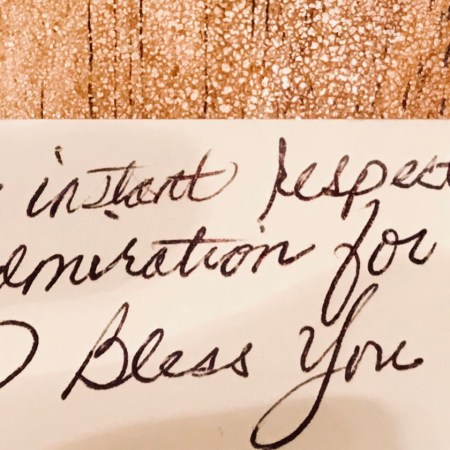 instant respect
admiration for
Bless You